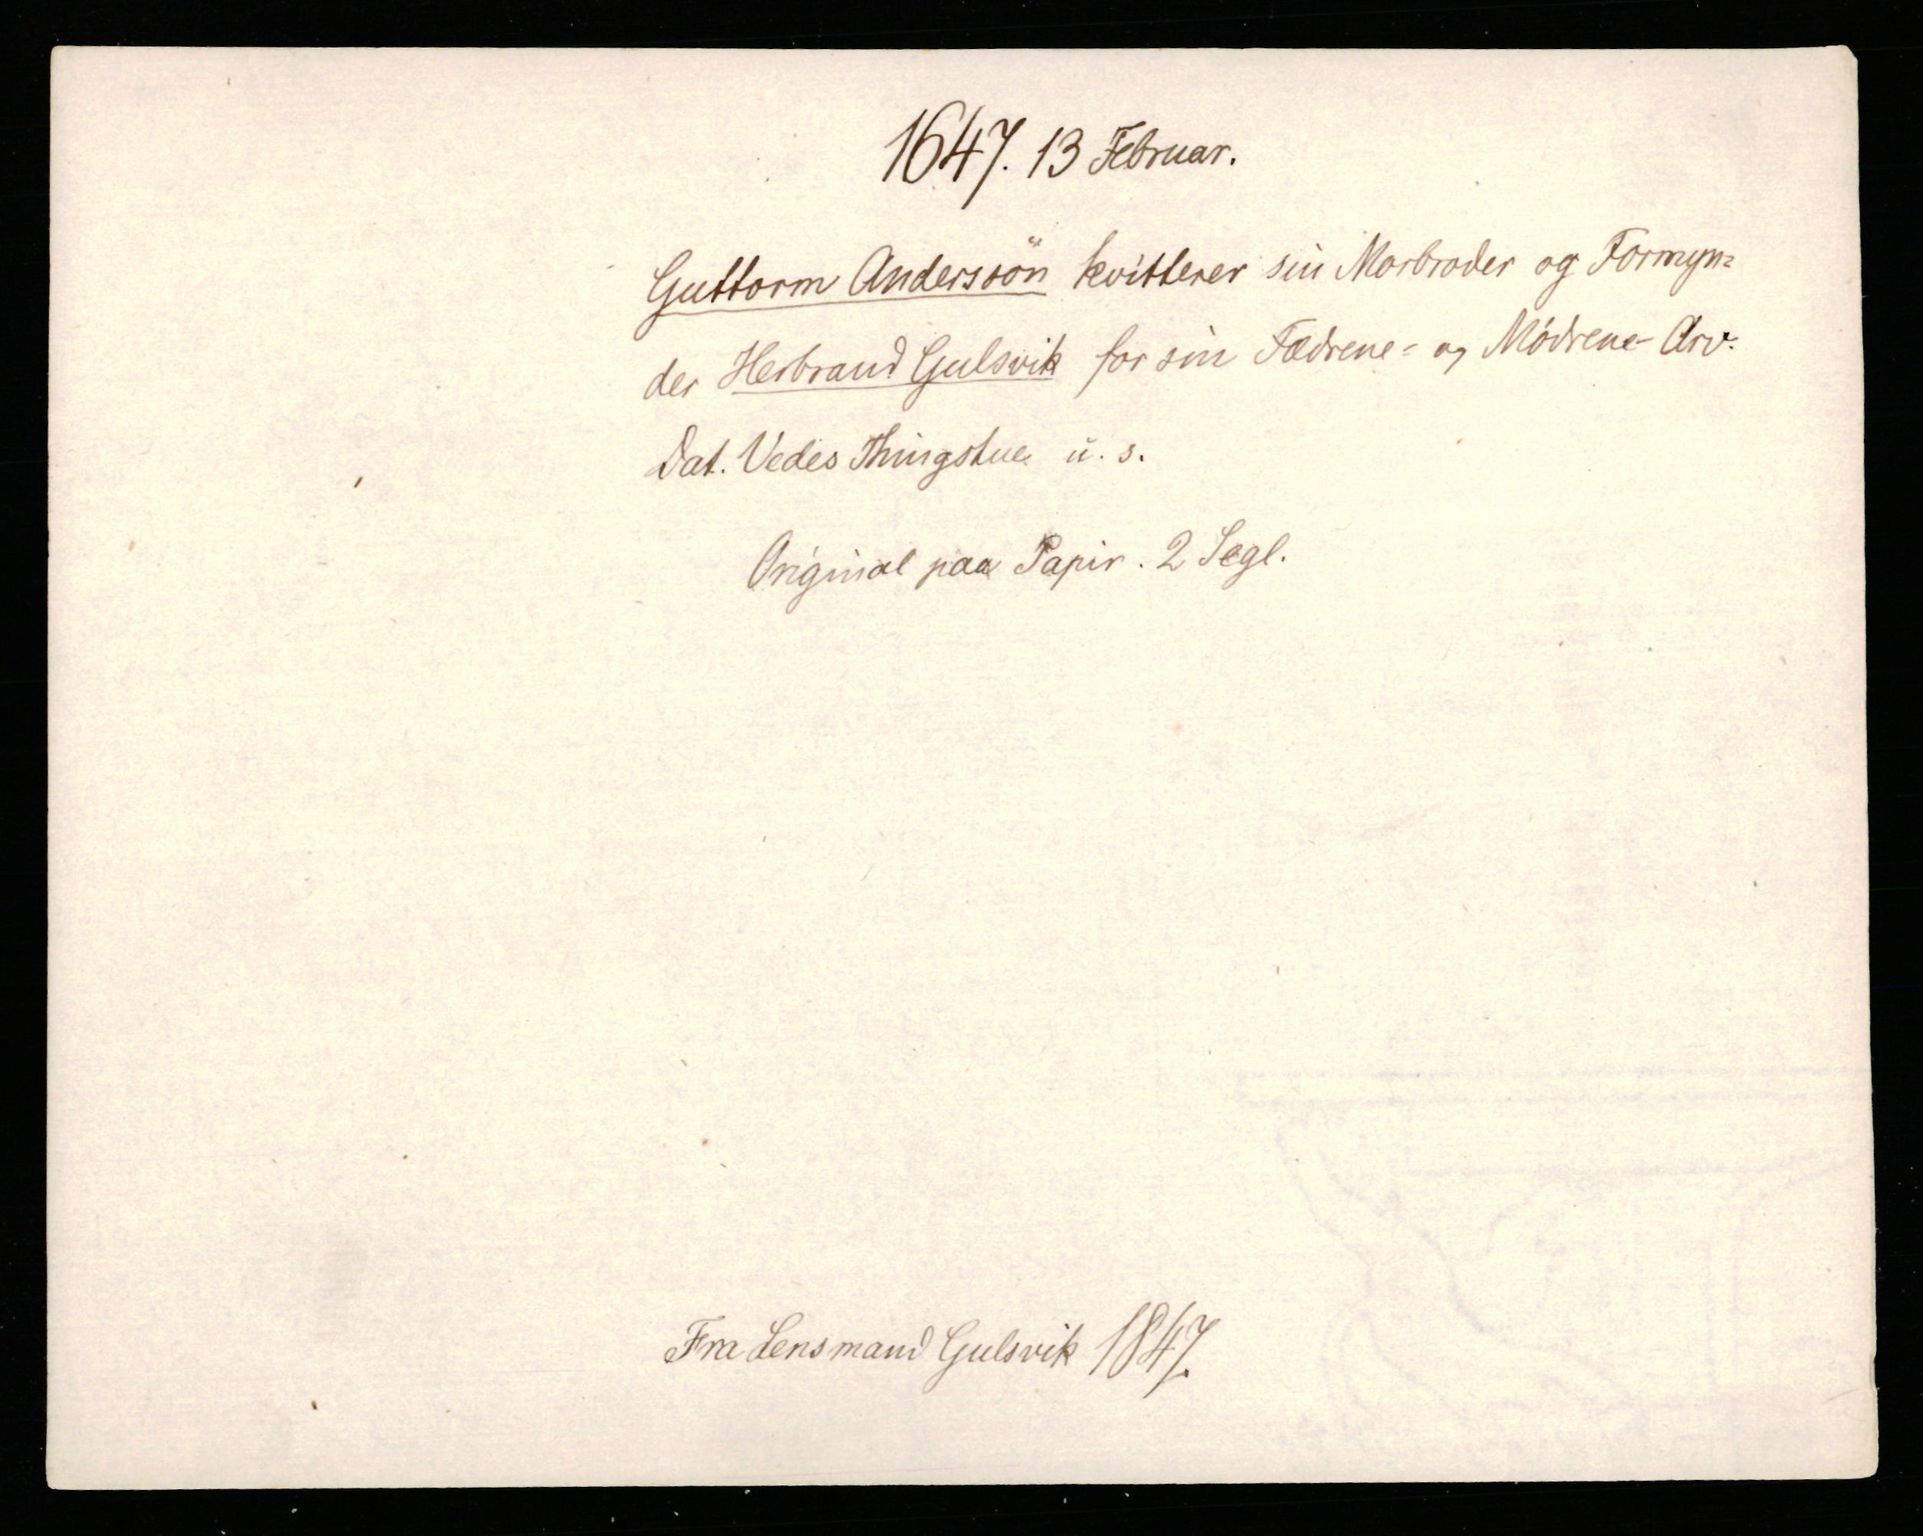 1647. 13 Februar.
Guttorm Anderssön kvitterer sin Morbroder og Formyn=
der Herbrand Gulsvik for sin Fædrene= og Mödrene- Arv.
Dat. Vedes Thingstue u. s.
Original paa Papir. 2 Segl.
Fra Lensmand Gulsvik 1847.